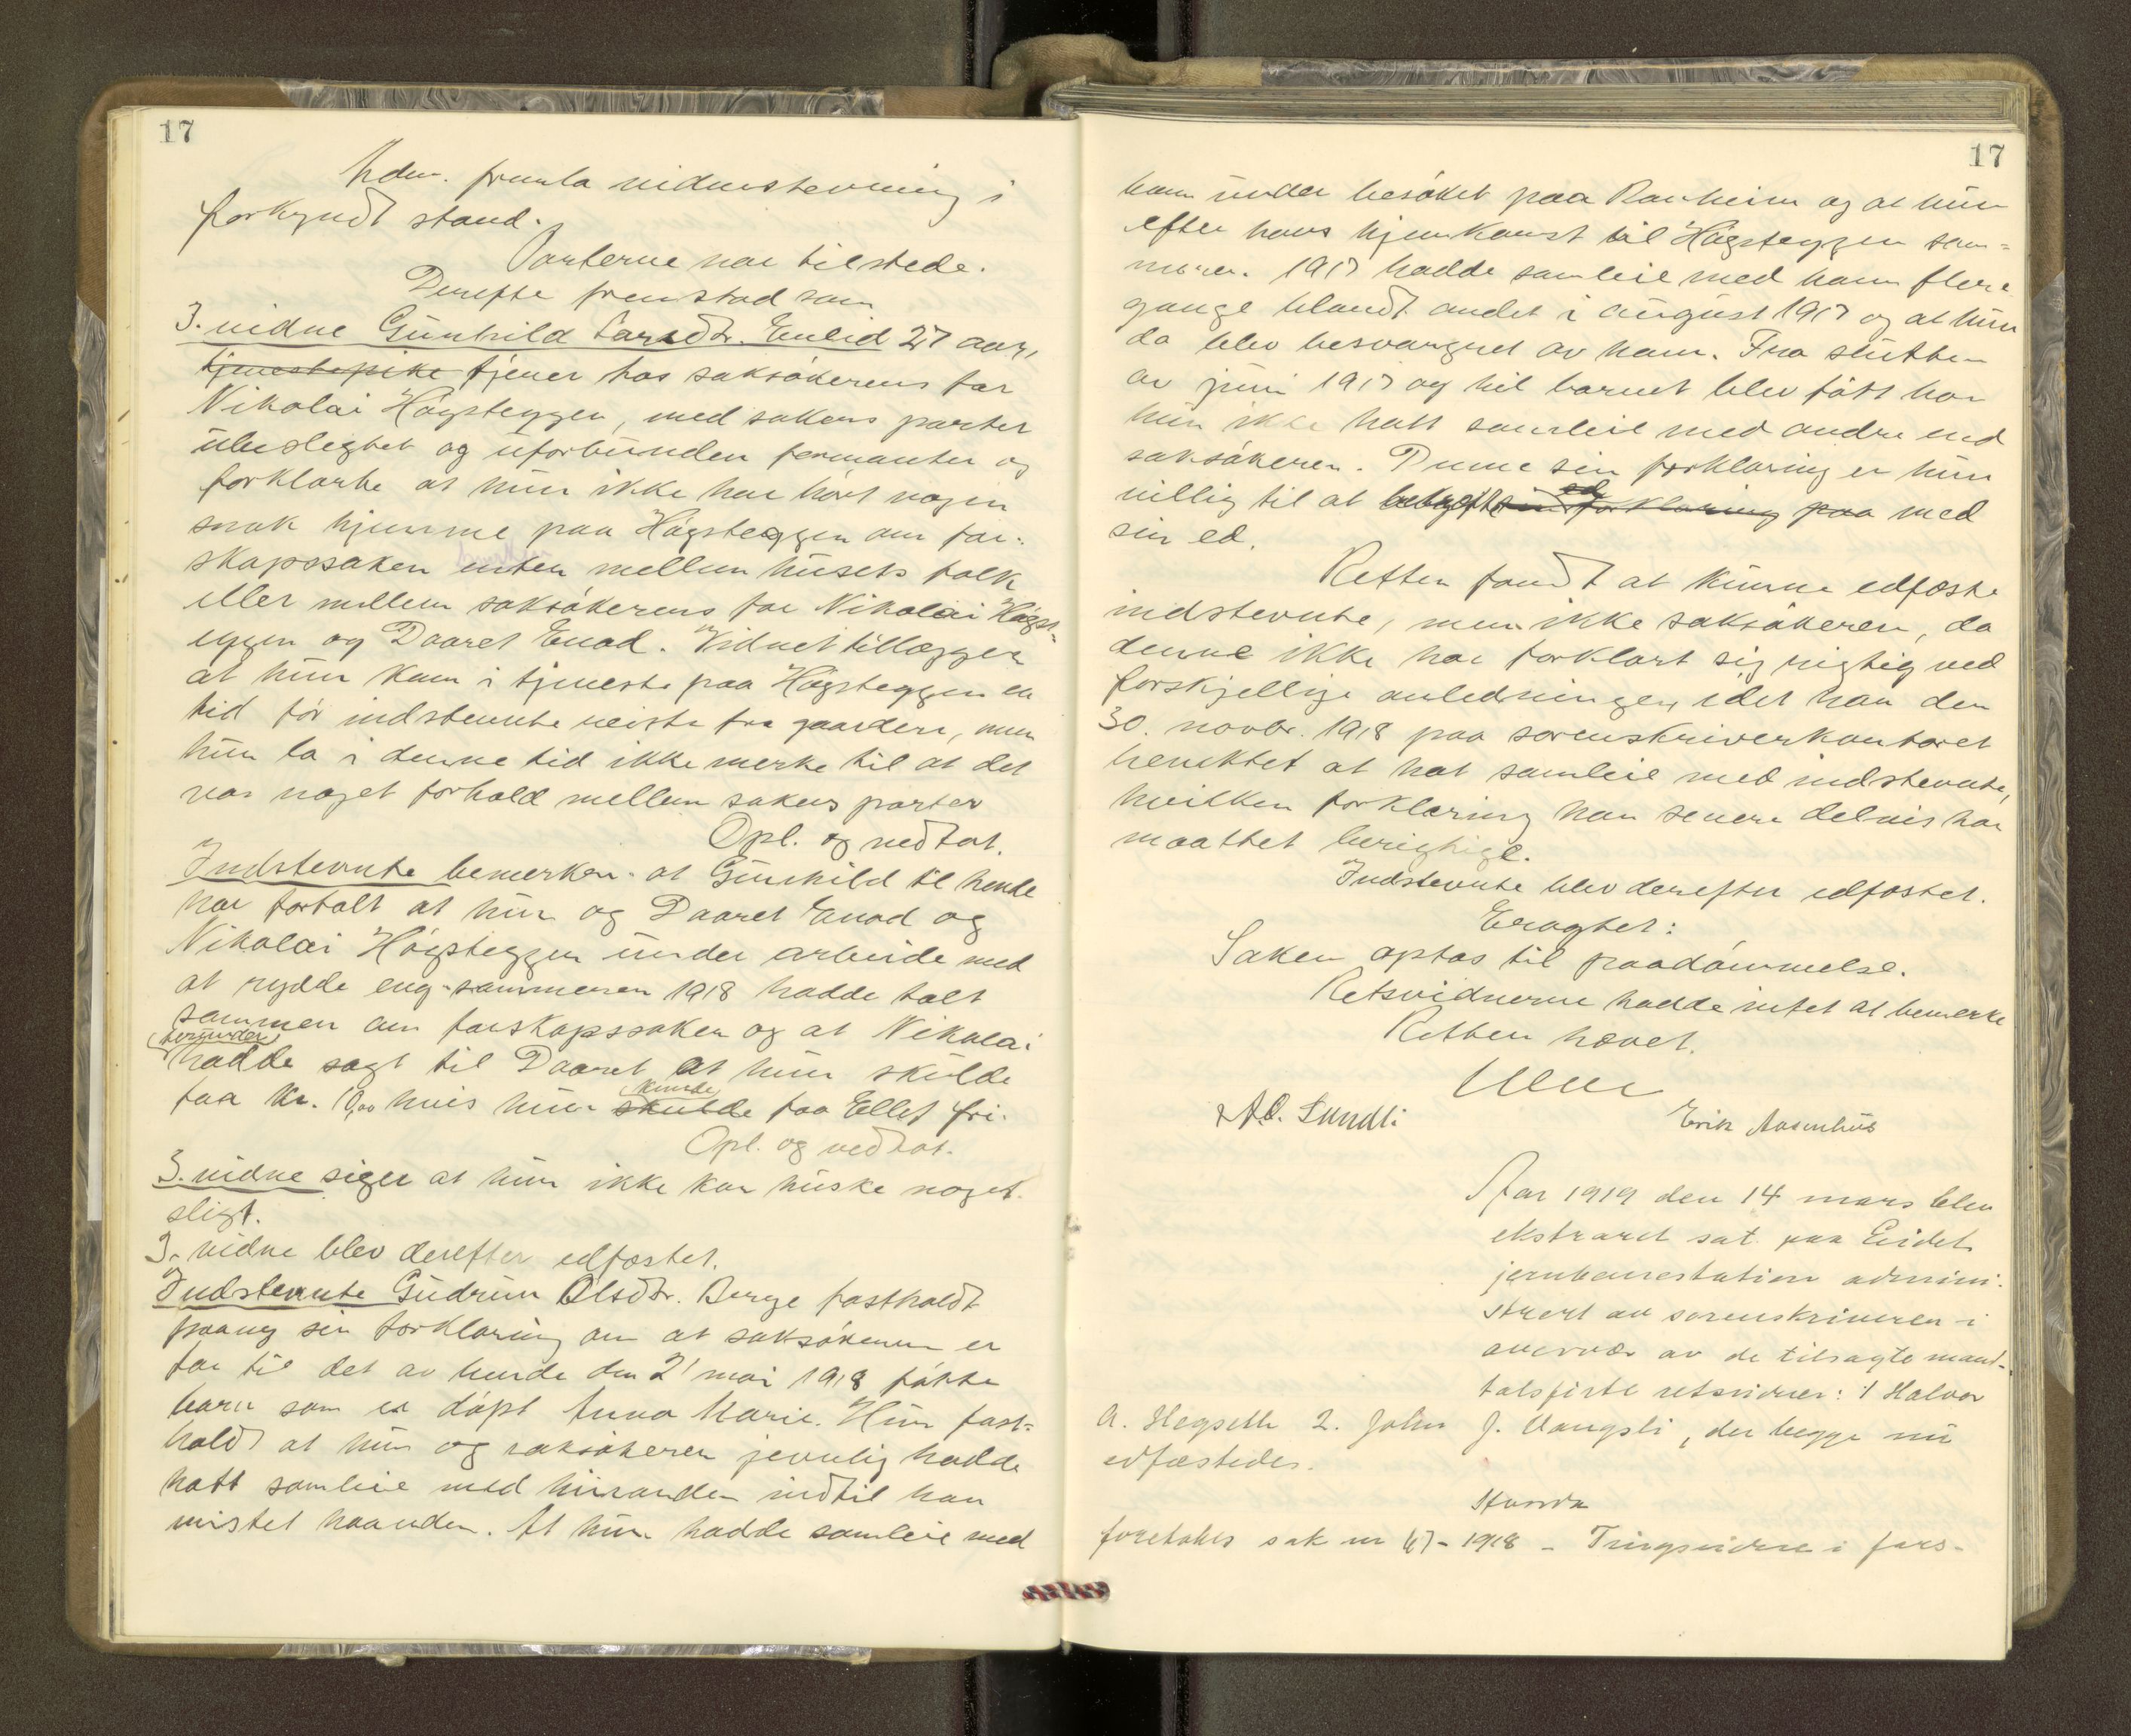 17
Adm. fremla vidnestevning i
forkyndt stand.
Parterne var tilstede.
Derefter fremstod som
3. vidne Gunhild Larsdtr. Enlid 27 aar,
tjenestepike tjener hos saksökerens far
Nikolai Högsteggen, med sakens parter
ubeslegtet og uforbunden formanter og
forklarte at hun ikke har hört nogen
snak hjemme paa Högsteggen om far-
skapssaken hverken enten mellem husets folk
eller mellem saksökerens far Nikolai Högst-
eggen og Daaret Enod. Vidnet tillægger
at hun kom i tjeneste paa Högsteggen en
tid för indstevnte reiste fra gaarden, men
hun la i denne tid ikke merke til at det
var noget forhold mellem sakens parter
Opl. og vedtat.
Indstevnte bemerker at Gunhild til hende
har fortalt at hun og Daaret Enod og
Nikolai Högsteggen under arbeide med
at rydde eng sommeren 1918 hadde talt
sammen om farskapssaken og at Nikolai
(herunder)
hadde sagt til Daaret at hun skulde
faa Kr. 10,00 hvis hun skulde (kunde) faa Ellef fri.
Opl. og vedtat.
3. vidne siger at hun ikke kan huske noget
sligt.
3. vidne blev derefter edfæstet.
Indstevnte Gudrun Olsdtr. Berge fastholdt
paany sin forklaring om at saksökeren er
far til det av hende den 21 mai 1918 födte
barn som er döpt Anna Marie. Hun fast-
holdt at hun og saksökeren jevnlig hadde
hatt samleie med hinanden indtil han
mistet haanden. At hun hadde samleie med
17
ham under besöket paa Ranheim og at hun
efter hans hjemkomst til Högsteggen som-
meren 1917 hadde samleie med ham flere
gange blandt andet i august 1917 og at hun
da blev besvangret av ham. Fra slutten
av juni 1917 og til barnet blev fött har
hun ikke hatt samleie med andre end
saksökeren. Denne sin forklaring er hun
villig til at bekræfte sin forklaring paa med
sin ed.
Retten fandt at kunne edfæste
indstevnte, men ikke saksökeren, da
denne ikke har forklart sig rigtig ved
forskjellige anledninger, idet han den
30. novbr. 1918 paa sorenskriverkontoret
benektet at hat samleie med indstevnte,
hvilken forklaring han senere delvis har
maattet berigtige.
Indstevnte blev derefter edfæstet.
Eragtet:
Saken optas til paadömmelse.
Retsvidnerne hadde intet at bemerke
Retten hævet.
Sundli
Erik Aasenhus
Aar 1919 den 14 mars blev
ekstraret sat paa Eidet
jernbanestation admini-
strert av sorenskriveren i
overvær av de tilsagte mand-
talsförte retsvidner: 1 Halvor
A. Hegseth 2. John J. Vangsli, der begge nu
edfæstedes.
Hvorda
foretokes sak nr 67-1918 - Tingsvidne i fars-